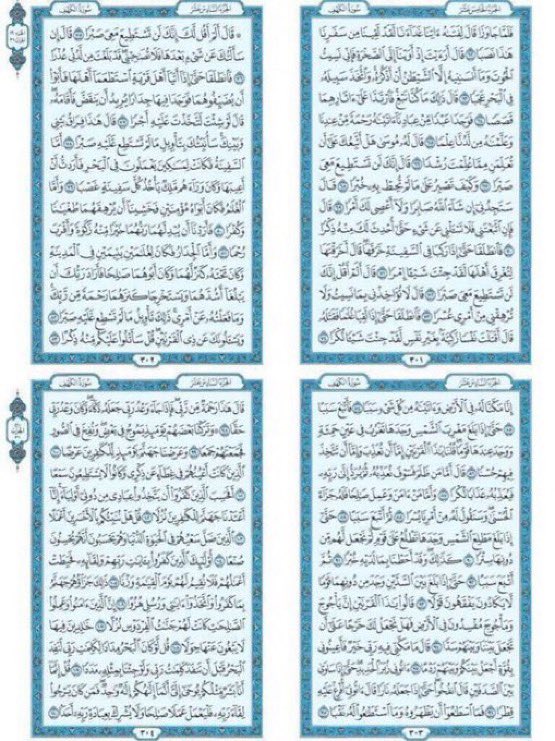 الجزء الخامس عشر سورة الكهف
فلما جاوزا قال لفتىه ءاتنا غداءنا لقد لقينا من سفرنا
هذا نصبا ٦٢ قال أرءيت إذ أوينا إلى الصخرة فإني نسيت
الحوت وما أنسىنيه إلا الشيطن أن أذكره واتخذ سبيله
في البحر عجبا ٦٣ قال ذلك ما كنا نبغ فارتدا على ءاثارهما
قصصا ٦٤ فوجدا عبدا من عبادنا ءاتينه رحمة من عندنا
وعلمنه من لدنا علما ٦٥ قال له موسى هل أتبعك على أن
تعلمن مما علمت رشدا ٦٦ قال إنك لن تستطيع معي
صبرا ٦٧ وكيف تصبر على ما لم تحط به خبرا ٦٨ قال
ستجدني إن شاء الله صابرا ولا أعصي لك أمرا ٦٩ قال
فإن اتبعتني فلا تسئلني عن شيء حتى أحدث لك منه ذكرا
٧٠ فانطلقا حتى إذا ركبا في السفينة خرقها قال أخرقتها
لتغرق أهلها لقد جئت شيئا إمرا ٧١ قال ألم أقل إنك
لن تستطيع معي صبرا ٧٢ قال لا تؤاخذني بما نسيت ولا
ترهقني من أمري عسرا ٧٣ فانطلقا حتى إذا لقيا غلما فقتله
قال أقتلت نفسا زكية بغير نفس لقد جئت شيئا نكرا ٧٤
٣٠١
الجزء السادس عشر سورة الكهف
۞ قال ألم أقل لك إنك لن تستطيع معي صبرا ٧٥ قال إن
سألتك عن شيء بعدها فلا تصحبني قد بلغت من لدني عذرا
٧٦ فانطلقا حتى إذا أتيا أهل قرية استطعما أهلها فأبوا
أن يضيفوهما فوجدا فيها جدارا يريد أن ينقض فأقامه
قال لو شئت لتخذت عليه أجرا ٧٧ قال هذا فراق بيني
وبينك سأنبئك بتأويل ما لم تستطع عليه صبرا ٧٨ أما
السفينة فكانت لمسكين يعملون في البحر فأردت أن
أعيبها وكان وراءهم ملك يأخذ كل سفينة غصبا ٧٩ وأما
الغلم فكان أبواه مؤمنين فخشينا أن يرهقهما طغينا
وكفرا ٨٠ فأردنا أن يبدلهما ربهما خيرا منه زكوة وأقرب
رحما ٨١ وأما الجدار فكان لغلمين يتيمين في المدينة
وكان تحته كنز لهما وكان أبوهما صلحا فأراد ربك أن
يبلغا أشدهما ويستخرجا كنزهما رحمة من ربك
وما فعلته عن أمري ذلك تأويل ما لم تسطع عليه صبرا ٨٢
ويسئلونك عن ذي القرنين قل سأتلوا عليكم منه ذكرا ٨٣
٣٠٢
الجزء السادس عشر سورة الكهف
إنا مكنا له في الأرض وءاتينه من كل شيء سببا ٨٤ فأتبع سببا
٨٥ حتى إذا بلغ مغرب الشمس وجدها تغرب في عين حمئة
ووجد عندها قوما قلنا يذا القرنين إما أن تعذب وإما أن تتخذ
فيهم حسنا ٨٦ قال أما من ظلم فسوف نعذبه ثم يرد إلى ربه
فيعذبه عذابا نكرا ٨٧ وأما من ءامن وعمل صلحا فله جزاء
الحسنى وسنقول له من أمرنا يسرا ٨٨ ثم أتبع سببا ٨٩ حتى
إذا بلغ مطلع الشمس وجدها تطلع على قوم لم نجعل لهم من
دونها سترا ٩٠ كذلك وقد أحطنا بما لديه خبرا ٩١ ثم
أتبع سببا ٩٢ حتى إذا بلغ بين السدين وجد من دونهما قوما
لا يكادون يفقهون قولا ٩٣ قالوا يذا القرنين إن يأجوج
ومأجوج مفسدون في الأرض فهل نجعل لك خرجا على أن
تجعل بيننا وبينهم سدا ٩٤ قال ما مكني فيه ربي خير فأعينوني
بقوة أجعل بينكم وبينهم ردما ٩٥ ءاتوني زبر الحديد حتى إذا ساوى
بين الصدفين قال انفخوا حتى إذا جعله نارا قال ءاتوني أفرغ عليه
قطرا ٩٦ فما اسطعوا أن يظهروه وما استطعوا له نقبا ٩٧
٣٠٣
الجزء السادس عشر سورة الكهف
قال هذا رحمة من ربي فإذا جاء وعد ربي جعله دكاء وكان وعد ربي
حقا ٩٨ ۞ وتركنا بعضهم يومئذ يموج في بعض ونفخ في الصور
فجمعنهم جمعا ٩٩ وعرضنا جهنم يومئذ للكفرين عرضا ١٠٠
الذين كانت أعينهم في غطاء عن ذكري وكانوا لا يستطيعون سمعا
١٠١ أفحسب الذين كفروا أن يتخذوا عبادي من دوني أولياء إنا
أعتدنا جهنم للكفرين نزلا ١٠٢ قل هل ننبئكم بالأخسرين أعملا
١٠٣ الذين ضل سعيهم في الحيوة الدنيا وهم يحسبون أنهم يحسنون
صنعا ١٠٤ أولئك الذين كفروا بءايت ربهم ولقائه فحبطت
أعملهم فلا نقيم لهم يوم القيمة وزنا ١٠٥ ذلك جزاؤهم جهنم
بما كفروا واتخذوا ءايتي ورسلي هزوا ١٠٦ إن الذين ءامنوا وعملوا
الصلحت كانت لهم جنت الفردوس نزلا ١٠٧ خلدين فيها
لا يبغون عنها حولا ١٠٨ قل لو كان البحر مدادا لكلمت ربي لنفد
البحر قبل أن تنفد كلمت ربي ولو جئنا بمثله مددا ١٠٩ قل إنما
أنا بشر مثلكم يوحى إلي أنما إلهكم إله وحد فمن كان يرجوا
لقاء ربه فليعمل عملا صلحا ولا يشرك بعبادة ربه أحدا ١١٠
٣٠٤